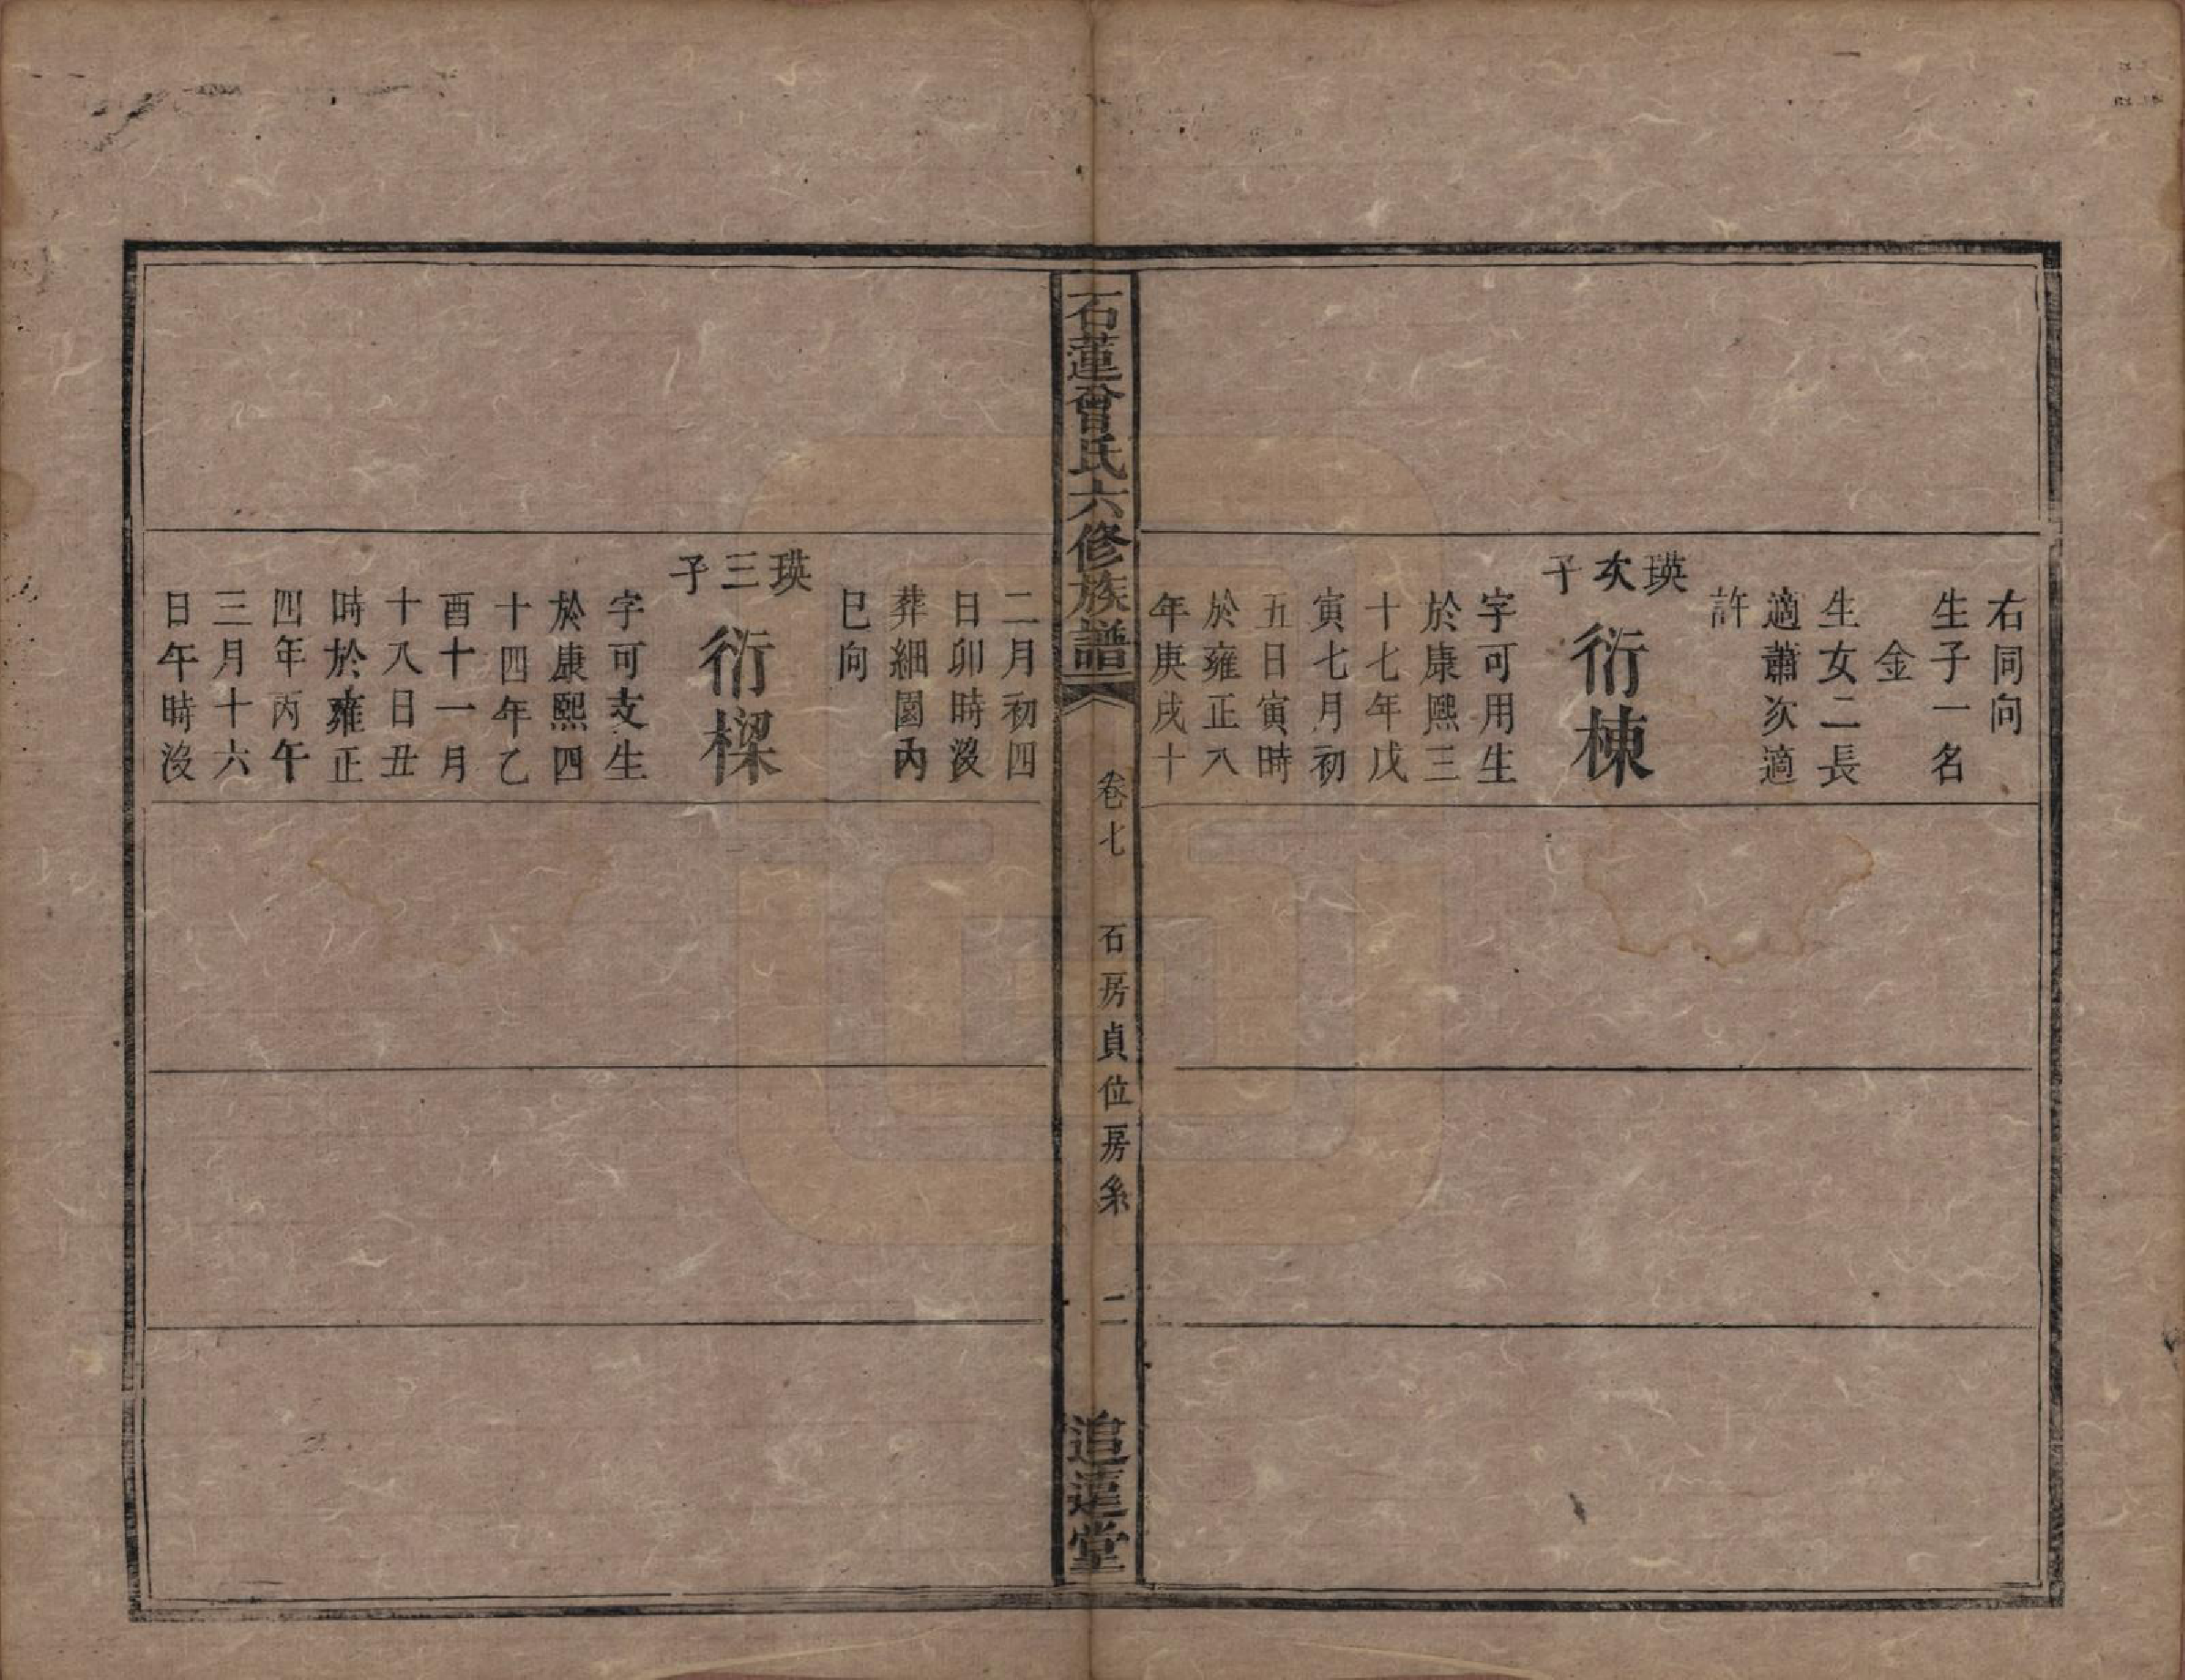 右同向
生子一名
金
生女二長
適蕭次適
許
瑛次子
衍棟
字可用生
於康熙三
十七年戊
寅七月初
五日寅時
於雍正八
年庚戌十
石蓮曾氏六修族譜
卷七
石房貞位房系
二
追遠堂
二月初四
日卯時沒
葬細園內
巳向
瑛三子
衍樑
字可支生
於康熙四
十四年乙
酉十一月
十八日丑
時於雍正
四年丙午
三月十六
日午時沒